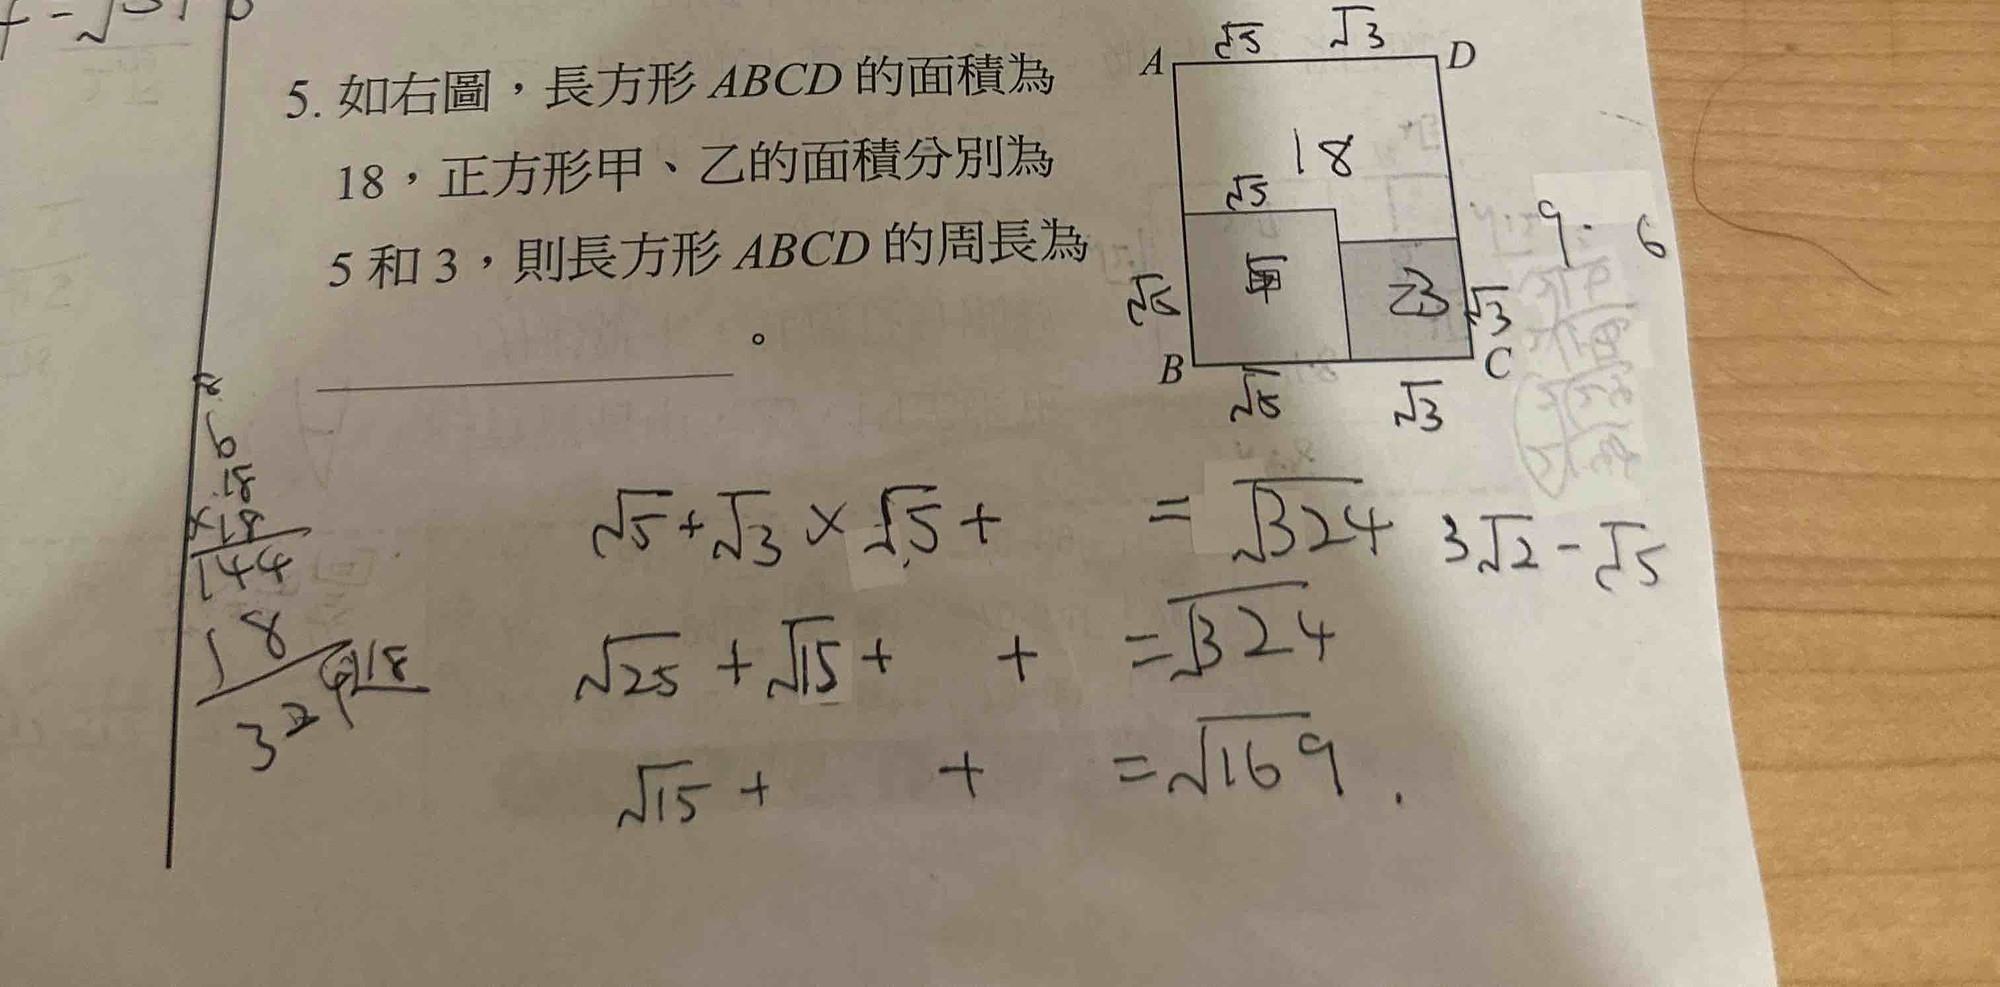 5. 如右圖，長方形 ABCD 的面積為
18，正方形甲、乙的面積分別為
5 和 3，則長方形 ABCD 的周長為
。
√5 √3
A D
18
√5
甲 乙3
√5 √3
B C
√5 √3
9. 6
18
×18
144
18
324
9 18
√5+√3×√5+ =√324 3√2-√5
√25+√15+ + =√324
√15+ + =√169.